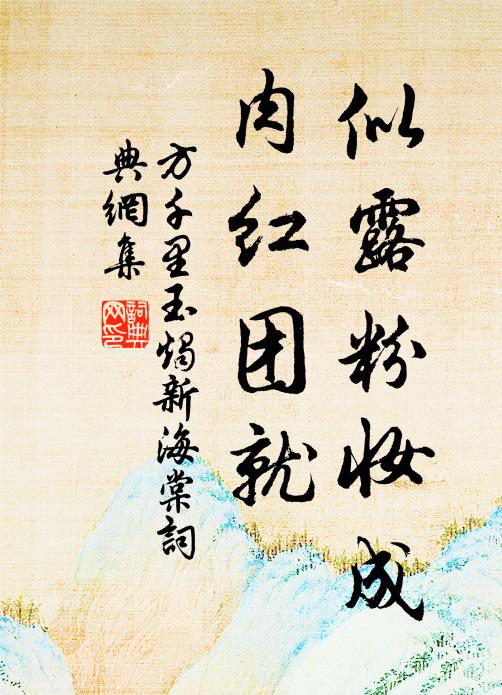 似露粉妆成
肉红团就
方千里玉烛新海棠词
典網集
詞典
网印